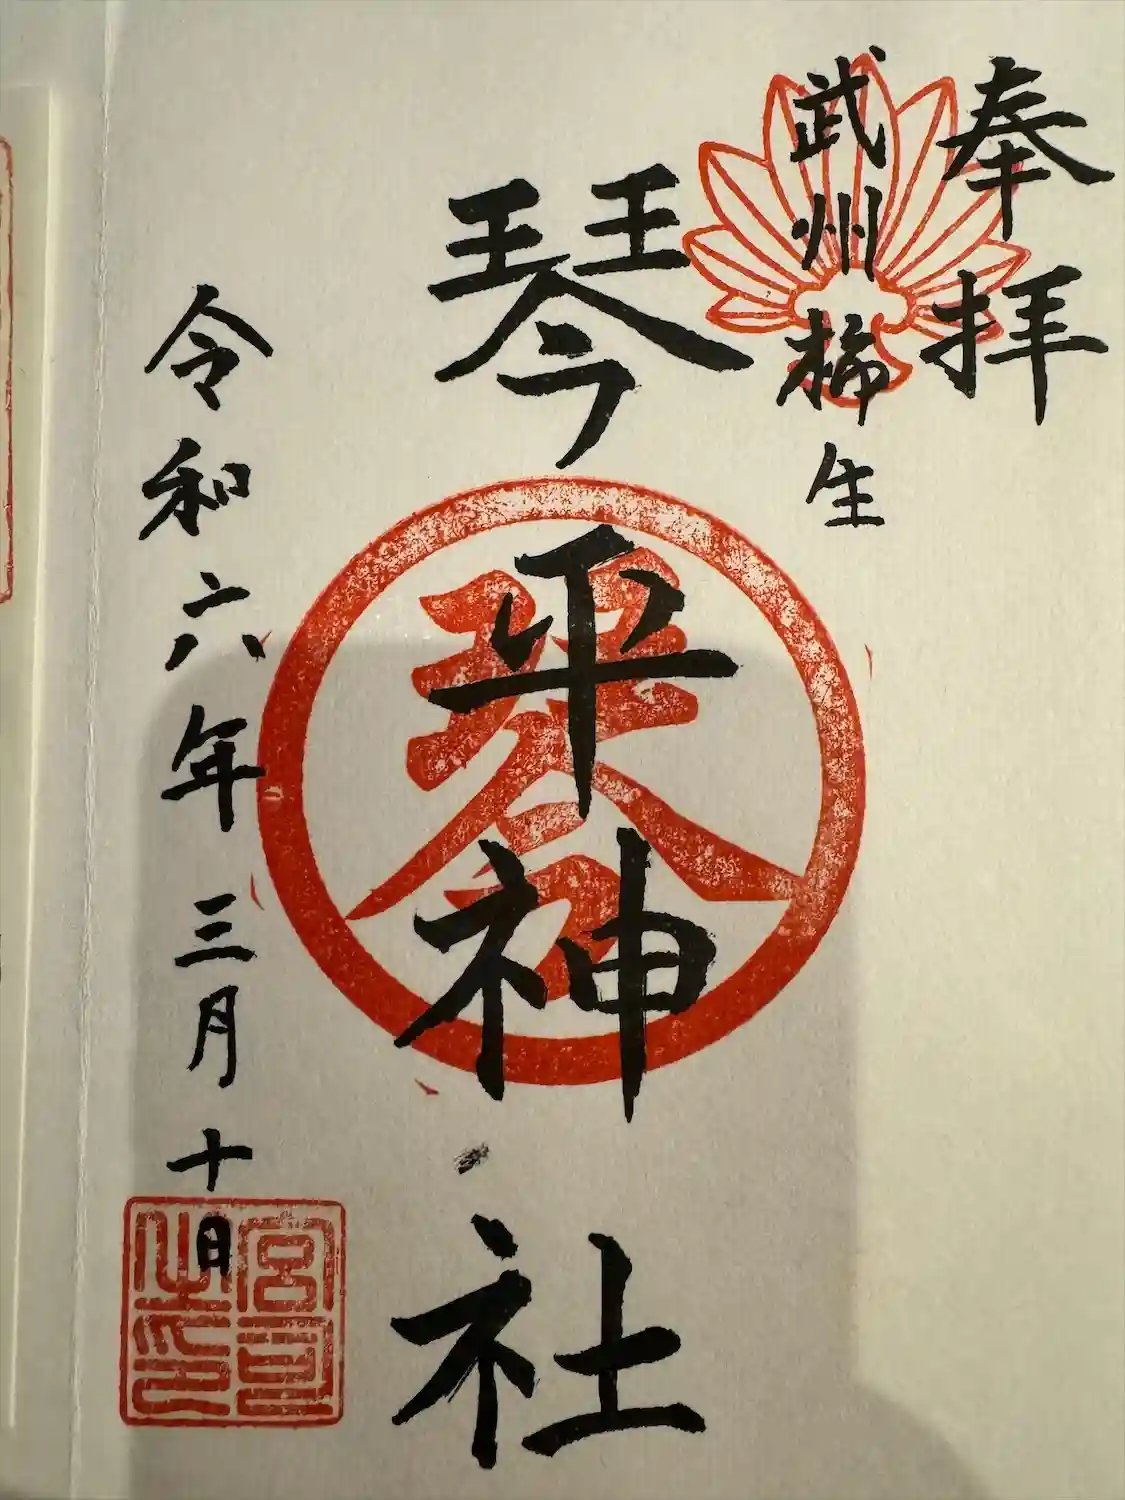 奉拝
武州柿生
琴平神社
琴
令和六年三月十日
宮司之印